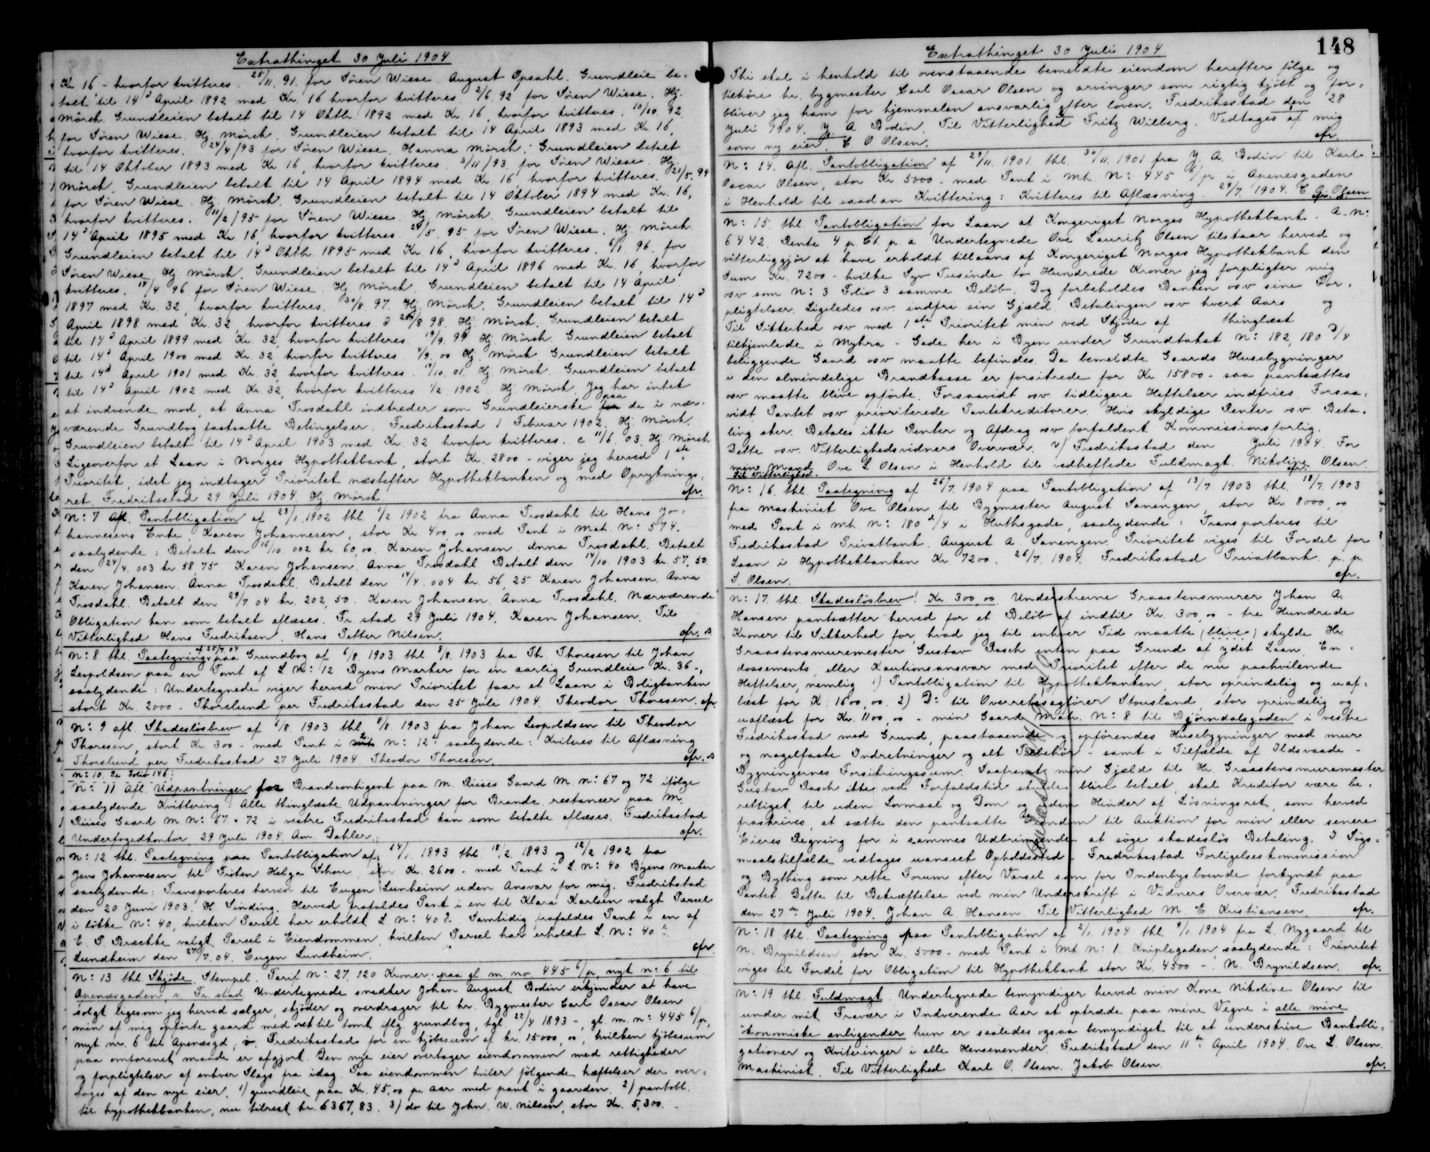 Extrathinget 30 Juli 1904
Kr. 16 - hvorfor kvitteres. 28/11 91. for Sören Wiese. August Opsahl. Grundleie be-
talt til 14d April 1892 med Kr. 16 hvorfor kvitteres 2/6 92 for Sören Wiese. Hj.
Mörch. Grundleien betalt til 14 Oktbr 1892 med Kr. 16, hvorfor kvitteres. 10/10 92
for Sören Wiese. Hj Mörch. Grundleien betalt til 14 April 1893 med Kr. 16,
hvorfor kvitteres. 24/4/93 for Sören Wiese. Hanna Mörch. Grundleien betalt
til 14 Oktober 1893 med Kr 16, hvorfor kvitteres 3/11/93 for Sören Wiese. Hj
Mörch. Grundleien betalt til 14 April 1894 med Kr. 16 hvorfor kvitteres. 21/5. 94
for Sören Wiese. Hj Mörch. Grundleien betalt til 14 Oktober 1894 med Kr. 16,
hvorfor kvitteres. 11/2/95 for Sören Wiese. Hj Mörch. Grundleien betalt til
14d April 1895 med Kr 16 hvorfor kvitteres 29/5. 95 for Sören Wiese. Hj. Mörch.
Grundleien betalt til 14d Oktb. 1895 med Kr. 16, hvorfor kvitteres. 6/1 96. for
Sören Wiese Hj Mörch. Grundleien betalt til 14d April 1896 med Kr. 16, hvorfor
kvitteres. 18/4 96 for Sören Wiese. Hj Mörch. Grundleien betalt til 14 April
1897 med Kr. 32, hvorfor kvitteres. 31/8. 97. Hj Mörch. Grundleien betalt til 14d
April 1898 med Kr. 32, hvorfor kvitteres /8 98. Hj Mörch. Grundleien betalt
til 14d April 1899 med Kr. 32, hvorfor kvitteres. 19/9. 99 Hj Mörch. Grundleien betalt
til 14d April 1900 med Kr. 32 hvorfor kvitteres 1/9. 00 Hj Mörch. Grundleien betalt
til 14d April 1901 med Kr. 32, hvorfor kvitteres. 1/10. 01. Hj Mörch. Grundleien betalt
til 14d April 1902 med Kr. 32, hvorfor kvitteres 1/2 1902 Hj Mörch. Jeg har intet
at indvende mod, at Anna Trosdahl indtreder som Grundleierske paa de i nær-
værende Grundbog fastsatte Betingelser. Fredriksstad 1 Febuar 1902 Hj. Mörch.
Grundleien betalt til 14d April 1903 med Kr 32 hvorfor kvitteres. 11/6. 03. Hj Mörch
Ligeoverfor et Laan i Norges Hypothekbank, stort Kr. 2800 - viger jeg herved 1ste
Prioritet, idet jeg indtager Prioritet næstefter Hypothekbanken og med Opryknings-
ret. Fredriksstad 29 Juli 1904 Hj Mörch. cfr.
N: 7 Afl. Pantobligation af 28/1 1902 thl 1/2 1902 fra Anna Trosdahl til Hans Jo-
hannesens Enke Karen Johannesen, stor Kr. 400,00 med Pant i Mat. N: 574.
saalydende: Betalt den 16/10. 002 kr. 60,00. Karen Johansen. Anna Trosdahl. Betalt
den 24/4. 003 kr 58 75 Karen Johansen. Anna Trosdahl Betalt den 14/10. 1903 kr. 57,50.
Karen Johansen. Anna Trosdahl. Betalt den 14/4. 004 kr. 56,25 Karen Johansen. Anna
Trosdahl. Betalt den 29/7 04 kr. 202,50. Karen Johansen. Anna Trosdahl. Nærværende
Obligation kan som betalt aflæses. Fr. stad 29 Juli 1904. Karen Johansen. Til
Vitterlighed Hans Fredriksen. Hans Petter Nilsen. cfr. s
N: 8 thl Paategning af 25/7 04 paa Grundbog af 6/8. 1903 thl 8/8. 1903 fra Th. Thoresen til Johan
Leopoldsen paa en Tomt af L N: 12 Byens Marker for en aarlig Grundleie Kr. 36 -,
saalydende: Undertegnede viger herved min Prioritet faar et Laan i Boligbanken
stort Kr. 2000 - Thorslund per Fredriksstad den 25 Juli 1904. Theodor Thoresen. cfr.
N: 9 afl Skadeslösbrev af 6/8. 1903 thl 8/8 1903 fra Johan Leopoldsen til Theodor
Thoresen, stort Kr. 300 - med Pant i L N: 12d saalydende: Kviteres til Aflæsning
Thorslund per Fredriksstad 27 Juli 1904 Theodor Thoresen. cfr. s
N: 10. Se Folio 146.
N: 11 Afl. Udpantninger for Brandcontigent paa M. Riises Gaard M N: 67 og 72 ifölge
saalydende Kvittering: Alle thinglæste Udpantninger for Brande restancer paa M.
Riises Gaard M N: 67 - 72 i vestre Fredriksstad kan som betalte aflæses. Fredriksstad
Underfogedkontor 29 Juli 1904. Am. Dahler. cfr.
N: 12 thl. Paategning paa Pantobligation af 14/1 1893 thl 18/2 1893 og 12/2 1902 fra
Jens Johannesen til Fröken Helga Schou, stor Kr. 2600 - med Pant i L N: 40 Byens marker
saalydende: Transporteres herved til Eugen Lundheim uden Ansvar for mig. Fredrikstad
den 20 Juni 1903. H. Sinding. Herved frafaldes Pant i en til Klara Karlsen valgt Parcel
i lökke N: 40, hvilken Parcel har erholdt L N: 40 l. Samtidig frafaldes Pant i en af
E. P. Brechke valgt Parcel i Eiendommen, hvilken Parcel har erholdt L. N: 40
Lundheim den 27/7. 04. Eugen Lundheim. cfr
N: 13 thl Skjöde. Stempel. Taxif N: 27, 120 Kroner. paa gl. m. no. 445 6/p, nyt n: 6 til
Apenæsgaden v. Fr. stad Undertegnede snedker Johan August Bodin erkjender at have
solgt ligesom jeg herved sælger, skjöder og overdrager til hr. Bygmester Carl Oscar Olsen
min af mig opförte gaard med ret til tomt flg. grundbog, tgl 22/4 1893 -, gl. m. n: 445 6/p,
nyt nr. 6 til Apenæsgd, v. Fredriksstad for en kjöbesum af kr. 15000,00, hvilken kjöbesum
paa omforenet maade er afgjort. Den nye eier overtager eiendommen med rettigheder
og forpligtelser af enhver Slags fra idag. Paa eiendommen hviler fölgende hæftelser der over-
tages af den nye eier. 1) grundleie paa Kr. 45,00 pr aar med pant i gaarden 2) pantobl.
til hypothekbanken, nu tilrest kr. 6367,83. 3) do til John. W. Nilsen, stor Kr. 5,300. -
148
Extrathinget 30 Juli 1904
Thi skal i henhold til ovenstaaende bemeldte eiendom herefter fölge og
tilhöre hr. bygmester Carl Oscar Olsen og arvinger som rigtig kjöbt og for-
bliver jeg ham for hjemmelen ansvarlig efter loven. Fredriksstad den 28
Juli 1904. J A Bodin. Til Vitterlighed Fritz Wilberg. Vedtages af mig
som ny eier. C O Olsen. cfr.
N: 14. Afl. Pantobligation af 29/11. 1901 thl. 30/11. 1901 fra J A. Bodin til Karl
Oscar Olsen, stor Kr 5000 - med Pant i Mt. N: 445 6/p i Apenesgaden
i Henhold til saadan Kvittering: Kvitteres til Aflæsning 29/7 1904. C. O. Olsen cfr. s.
N: 15 thl Pantobligation for Laan af Kongeriget Norges Hypothekbank. A. N:
6442. Rente 4 p. Ct. p. a Undertegnede Ove Lauritz Olsen tilstaar herved og
vitterliggjör at have erholdt tillaans af Kongeriget Norges Hypothekbank den
Sum Kr. 7200 - hvilke Syv Tusinde to Hundrede Kroner jeg forpligter mig
osv som N: 3 Folio 3 samme Belöb. Dog forbeholdes Banken osv sine For-
pligtelser. Ligeledes osv indfri sin Gjæld. Betalingen osv hvert Aars og
Til Sikkerhed osv med 1ste Prioritet min ved Skjöde af thinglæst
tilhjemlede i Myhra - Gade her i Byen under Grundtakst N: 182, 180 2/4
beliggende Gaard osv maatte befindes. Da bemeldte Gaards Husebygninger
i den almindelige Brandkasse er forsikrede for Kr 15800 - saa pantsættes
osv maatte blive opförte. Forsaavidt osv tidligere Heftelser indfries. Forsaa-
vidt Pantet osv prioriterede Pantekreditorer. Hvis skyldige Renter osv Beta-
ling sker. Betales ikke Renter og Afdrag osv forfaldent Kommissionsforlig.
Dette osv. Vitterlighedsvidners Overvær. Fredriksstad den Juli 1904. For
min Mand Ove L Olsen i Henhold til vedheftede Fuldmagt. Nikoline Olsen.
Til Vitterlighed cfr.
N: 16. thl. Paategning af 26/7. 1904 paa Pantobligation af 13/7 1903 thl. 18/7. 1903
fra maskinist Ove Olsen til Bygmester August Sanengen, stor Kr 8000,00
med Pant i Mt. N: 180 2/4 i Huthsgade, saalydende: Transporteres til
Fredriksstad Privatbank. August A Sanengen. Prioritet viges til Fordel for
Laan i Hypothekbanken Kr. 7200. 26/7. 1904. Fredriksstad Privatbank p. p
S. Olsen. cfr.
N: 17. thl. Skadeslösbrev! Kr. 300,00 Underskrevne Graastensmurer Johan A
Hansen pantsætter herved for et Belöb af indtil Kr. 300,00 - tre Hundrede
Kroner til Sikkerhed for, hvad jeg til enhver Tid maatte (blive) skylde Hr.
Graastensmuremester Gustav Pasch enten paa Grund af ydet Laan, En-
dossements eller Kautionsansvar med Prioritet efter de nu paahvilende
Heftelser, nemlig 1) Pantobligation til Hypothekbanken, stor oprindelig og uaf-
læst for K. 1500,00. 2) D: til Overretssagförer Stousland, stor oprindelig og
uaflæst for Kr. 1100,00 - min Gaard Matr. N: 8 til Björndalsgaden i vestre
Fredriksstad med Grund, paastaaende og opförendes Husebygninger med mur
og nagelfaste Indretninger og alt Tilbehör - samt i Tilfælde af Ildsvaade -
Bygningernes Forsikringssum. Saafremt min Gjæld til Hr. Graastensmuremester
Gustav Pasch ikke ved Forfaldstid skulde blive betalt, skal Kreditor være be-
rettiget til uden Lovmaal og Dom og uden Hinder af Lösningsret, som herved
fraskrives, at sætte den pantsatte Eiendom til Auktion for min eller senere
Eieres Regning for i sammes Udbringende at söge skadeslös Betaling. I Sögs-
maalstilfælde vedtages uanseet Opholdssted Fredriksstad Forligelseskommission
og Bything som rette Forum efter Varsel som for Indenbysboende forkyndt paa
Pantet. Dette til Bekræftelse ved min Underskrift i Vidners Overvær. Fredriksstad
den 27de Juli 1904. Johan A Hansen. Til Vitterlighed M. E Kristiansen cfr.
N: 18 thl Paategning paa Pantobligation af 2/1. 1904 thl. 9/1. 1904 fra L. Nygaard til
N. Brynildsen, stor Kr. 5000 - med Pant i Mt N: 1. Kniplegaden, saalydende: Prioritet
viges til Fordel for Obligation til Hypothekbank stor Kr. 4500 - N. Brynildsen. cfr.
N: 19 thl. Fuldmagt. Undertegnede bemyndiger herved min Kone Nikoline Olsen til
under mit Fravær i Indeværende Aar at optræde paa mine Vegne i alle mine
ökonomiske anligender hun er saaledes ogsaa bemyndiget til at underskrive Bankobli-
gationer og Kvitteringer i alle Henseender. Fredriksstad den 11te April 1904. Ove L. Olsen.
Maskinist. Til Vitterlighed Karl O. Olsen. Jakob Olsen. cfr.